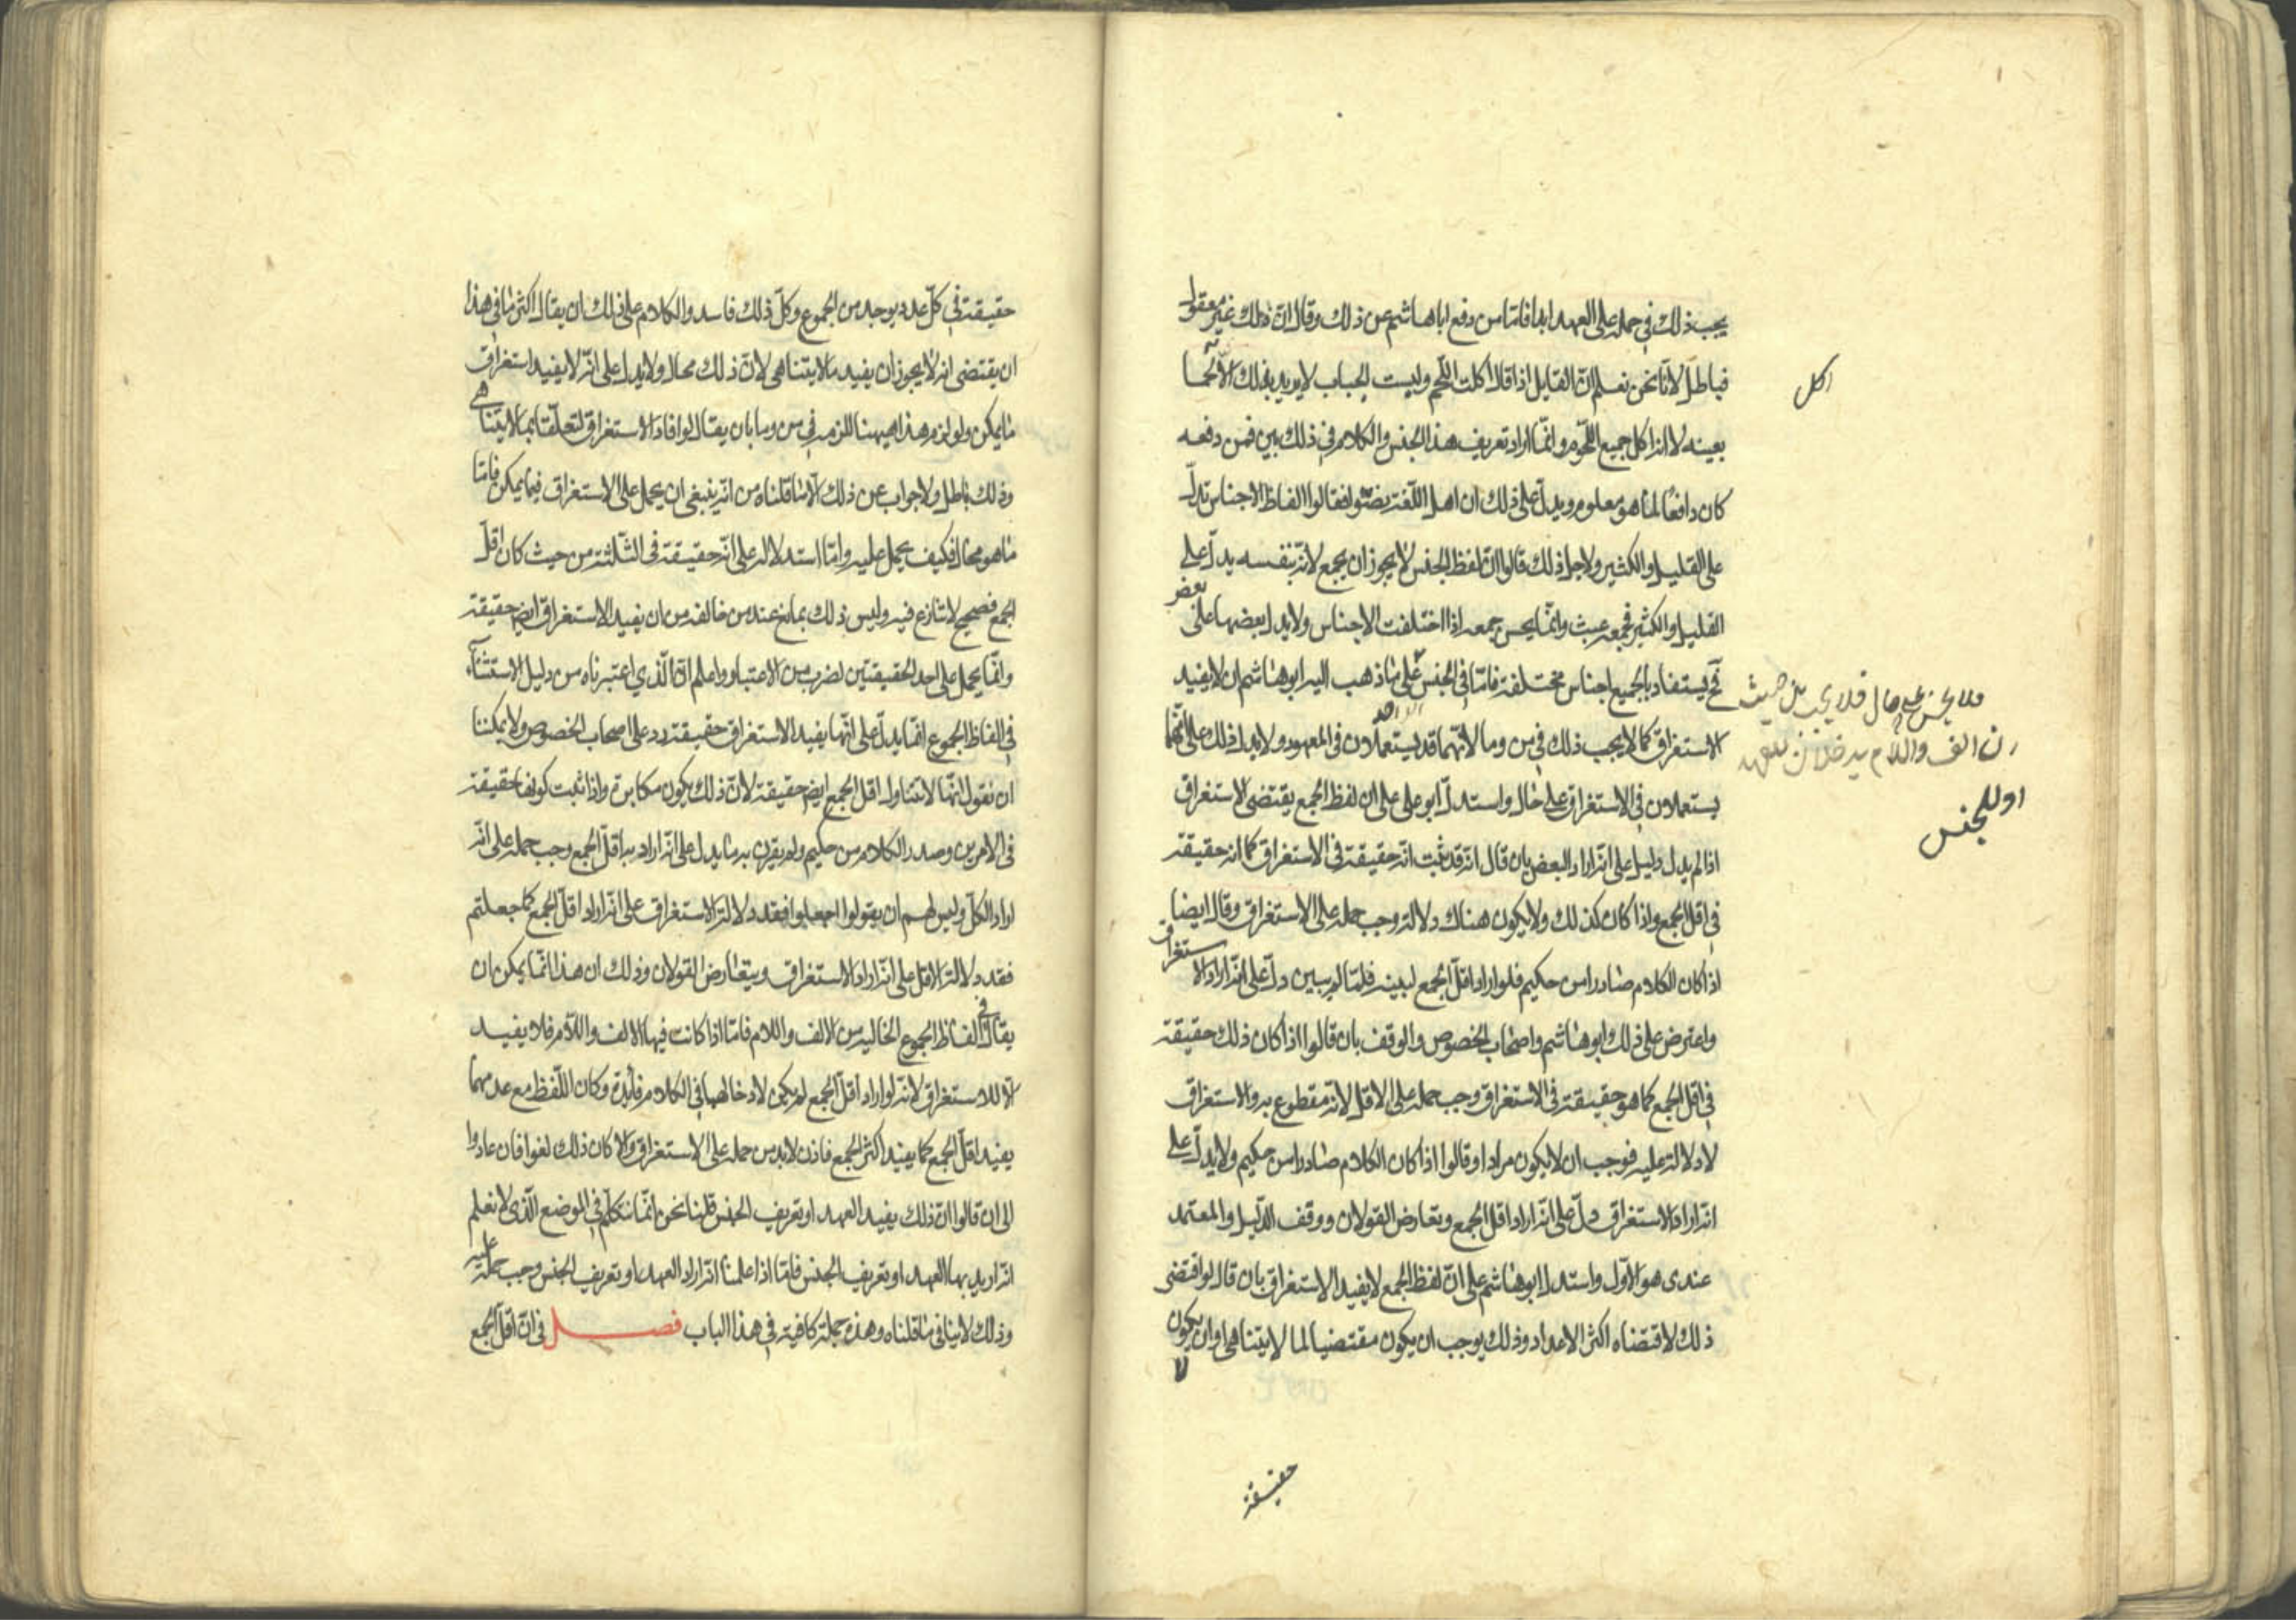 يجب ذلك في حمله على العهد ابدا فاما من دفع اباهاشم عن ذلك وقال ان ذلك غير معقول
فباطل لانا نحن نعلم ان القايل اذا قال اكلت اللحم ولبست الجباب لا يريد بذلك
بعينه لا انه اكل جميع اللحوم وانما اراد تعريف هذا الجنس والكلام في ذلك بين فمن دفعه
كان دافعا لما هو معلوم ويدل على ذلك ان اهل اللغة فقالوا الفاظ الاجناس تدل
على القليل والكثير ولاجل ذلك قالوا ان لفظ الجنس لا يجوز ان يجمع لانه بنفسه يدل على
القليل والكثير فجمعه عبث وانما يحسن جمعه اذا اختلفت الاجناس ولا يدل بعضها على بعض
فح يستفاد بالجميع اجناس مختلفة فاما في الجنس على ما ذهب اليه ابوهاشم ان لا يفيد
الاستغراق كما لا يجب ذلك في من وما لانهما قد يستعملان في المعهود ولا يدل ذلك على انهما
يستعملان في الاستغراق على حال واستدل ابو علي على ان لفظ الجمع يقتضى الاستغراق
اذا لم يدل دليل على انه اراد البعض بان قال انه قد ثبت انه حقيقة في الاستغراق كما انه حقيقة
في اقل الجمع واذا كان كذلك ولا يكون هناك دلالة وجب حمله على الاستغراق وقال ايضا
اذا كان الكلام صادرا من حكيم فلو اراد اقل الجمع لبينه فلما لم يبين دل على انه اراد الاستغراق
واعترض على ذلك ابوهاشم واصحاب الخصوص والوقف بان قالوا اذا كان ذلك حقيقة
في اقل الجمع كما هو حقيقة في الاستغراق وجب حمله على الاقل لانه مقطوع به والاستغراق
لا دلالة عليه فوجب ان لا يكون مرادا وقالوا اذا كان الكلام صادرا من حكيم ولا يدل على
انه اراد الاستغراق دل على انه اراد اقل الجمع وتعارض القولان ووقف الدليل والمعتمد
عندى هو الاول واستدل ابوهاشم على ان لفظ الجمع لا يفيد الاستغراق بان قال لو اقتضى
ذلك لاقتضاه اكثر الاعداد وذلك يوجب ان يكون مقتضيا لما لا يتناهى وان يكون
لا
حقيقة
اكل
على حال
الالف واللام يدخلان للعهد
او للجنس
حقيقة في كل عدد يوجد من الجموع وكل ذلك فاسد والكلام على ذلك ان يقال اكثر ما في هذا
ان يقتضى انه لا يجوز ان يفيد ما لا يتناهى لان ذلك محال ولا يدل على انه لا يفيد استغراق
ما يمكن ولو لزم هذا هيهنا للزمه في من وما بان يقال لو افاد الاستغراق لتعلقا بما لا يتناهى
وذلك باطل ولا جواب عن ذلك الا ما قلناه من انه ينبغى ان يحمل على الاستغراق فيما يمكن فاما
ما هو محال فكيف يحمل عليه واما استدلاله على انه حقيقة في الثلثة من حيث كان اقل
الجمع فصحيح لا تنازع فيه وليس ذلك بمانع عند من خالفه من ان يفيد الاستغراق ايضا حقيقة
وانما يحمل على احد الحقيقتين لضرب من الاعتبار واعلم ان الذي اعتبرناه من دليل الاستثناء
في الفاظ الجموع انما يدل على انها يفيد الاستغراق حقيقة رد على اصحاب الخصوص ولا يمكننا
ان نقول انها لا تتناول اقل الجمع ايضا حقيقة لان ذلك يكون مكابرة واذا ثبت كونها حقيقة
في الامرين وصدر الكلام من حكيم ولم يقرن به ما يدل على انه اراد به اقل الجمع وجب حمله على انه
اراد الكل وليس لهم ان يقولوا اجعلوا فقد دلالة الاستغراق على انه اراد اقل الجمع كما جعلتم
فقد دلالة الاقل على انه اراد الاستغراق ويتعارض القولان وذلك ان هذا انما يمكن ان
يقال في الفاظ الجموع الخالية من الالف واللام فاما اذا كانت فيها الالف واللام فلا يفيد
الا للاستغراق لانه لو اراد اقل الجمع لم يكن لادخالهما في الكلام فائدة وكان اللفظ مع عدمهما
يفيد اقل الجمع كما يفيد اكثر الجمع فاذن لابد من حمله على الاستغراق والا كان ذلك لغوا فان عادوا
الى ان قالوا ان ذلك يفيد العهد او تعريف الجنس قلنا نحن انما نتكلم في الموضع الذى لا نعلم
انه اريد بها العهد او تعريف الجنس فاما اذا علمنا انه اراد العهد او تعريف الجنس وجب حمله عليه
وذلك لا ينافى ما قلناه وهذه جملة كافية في هذا الباب فصل في ان اقل الجمع